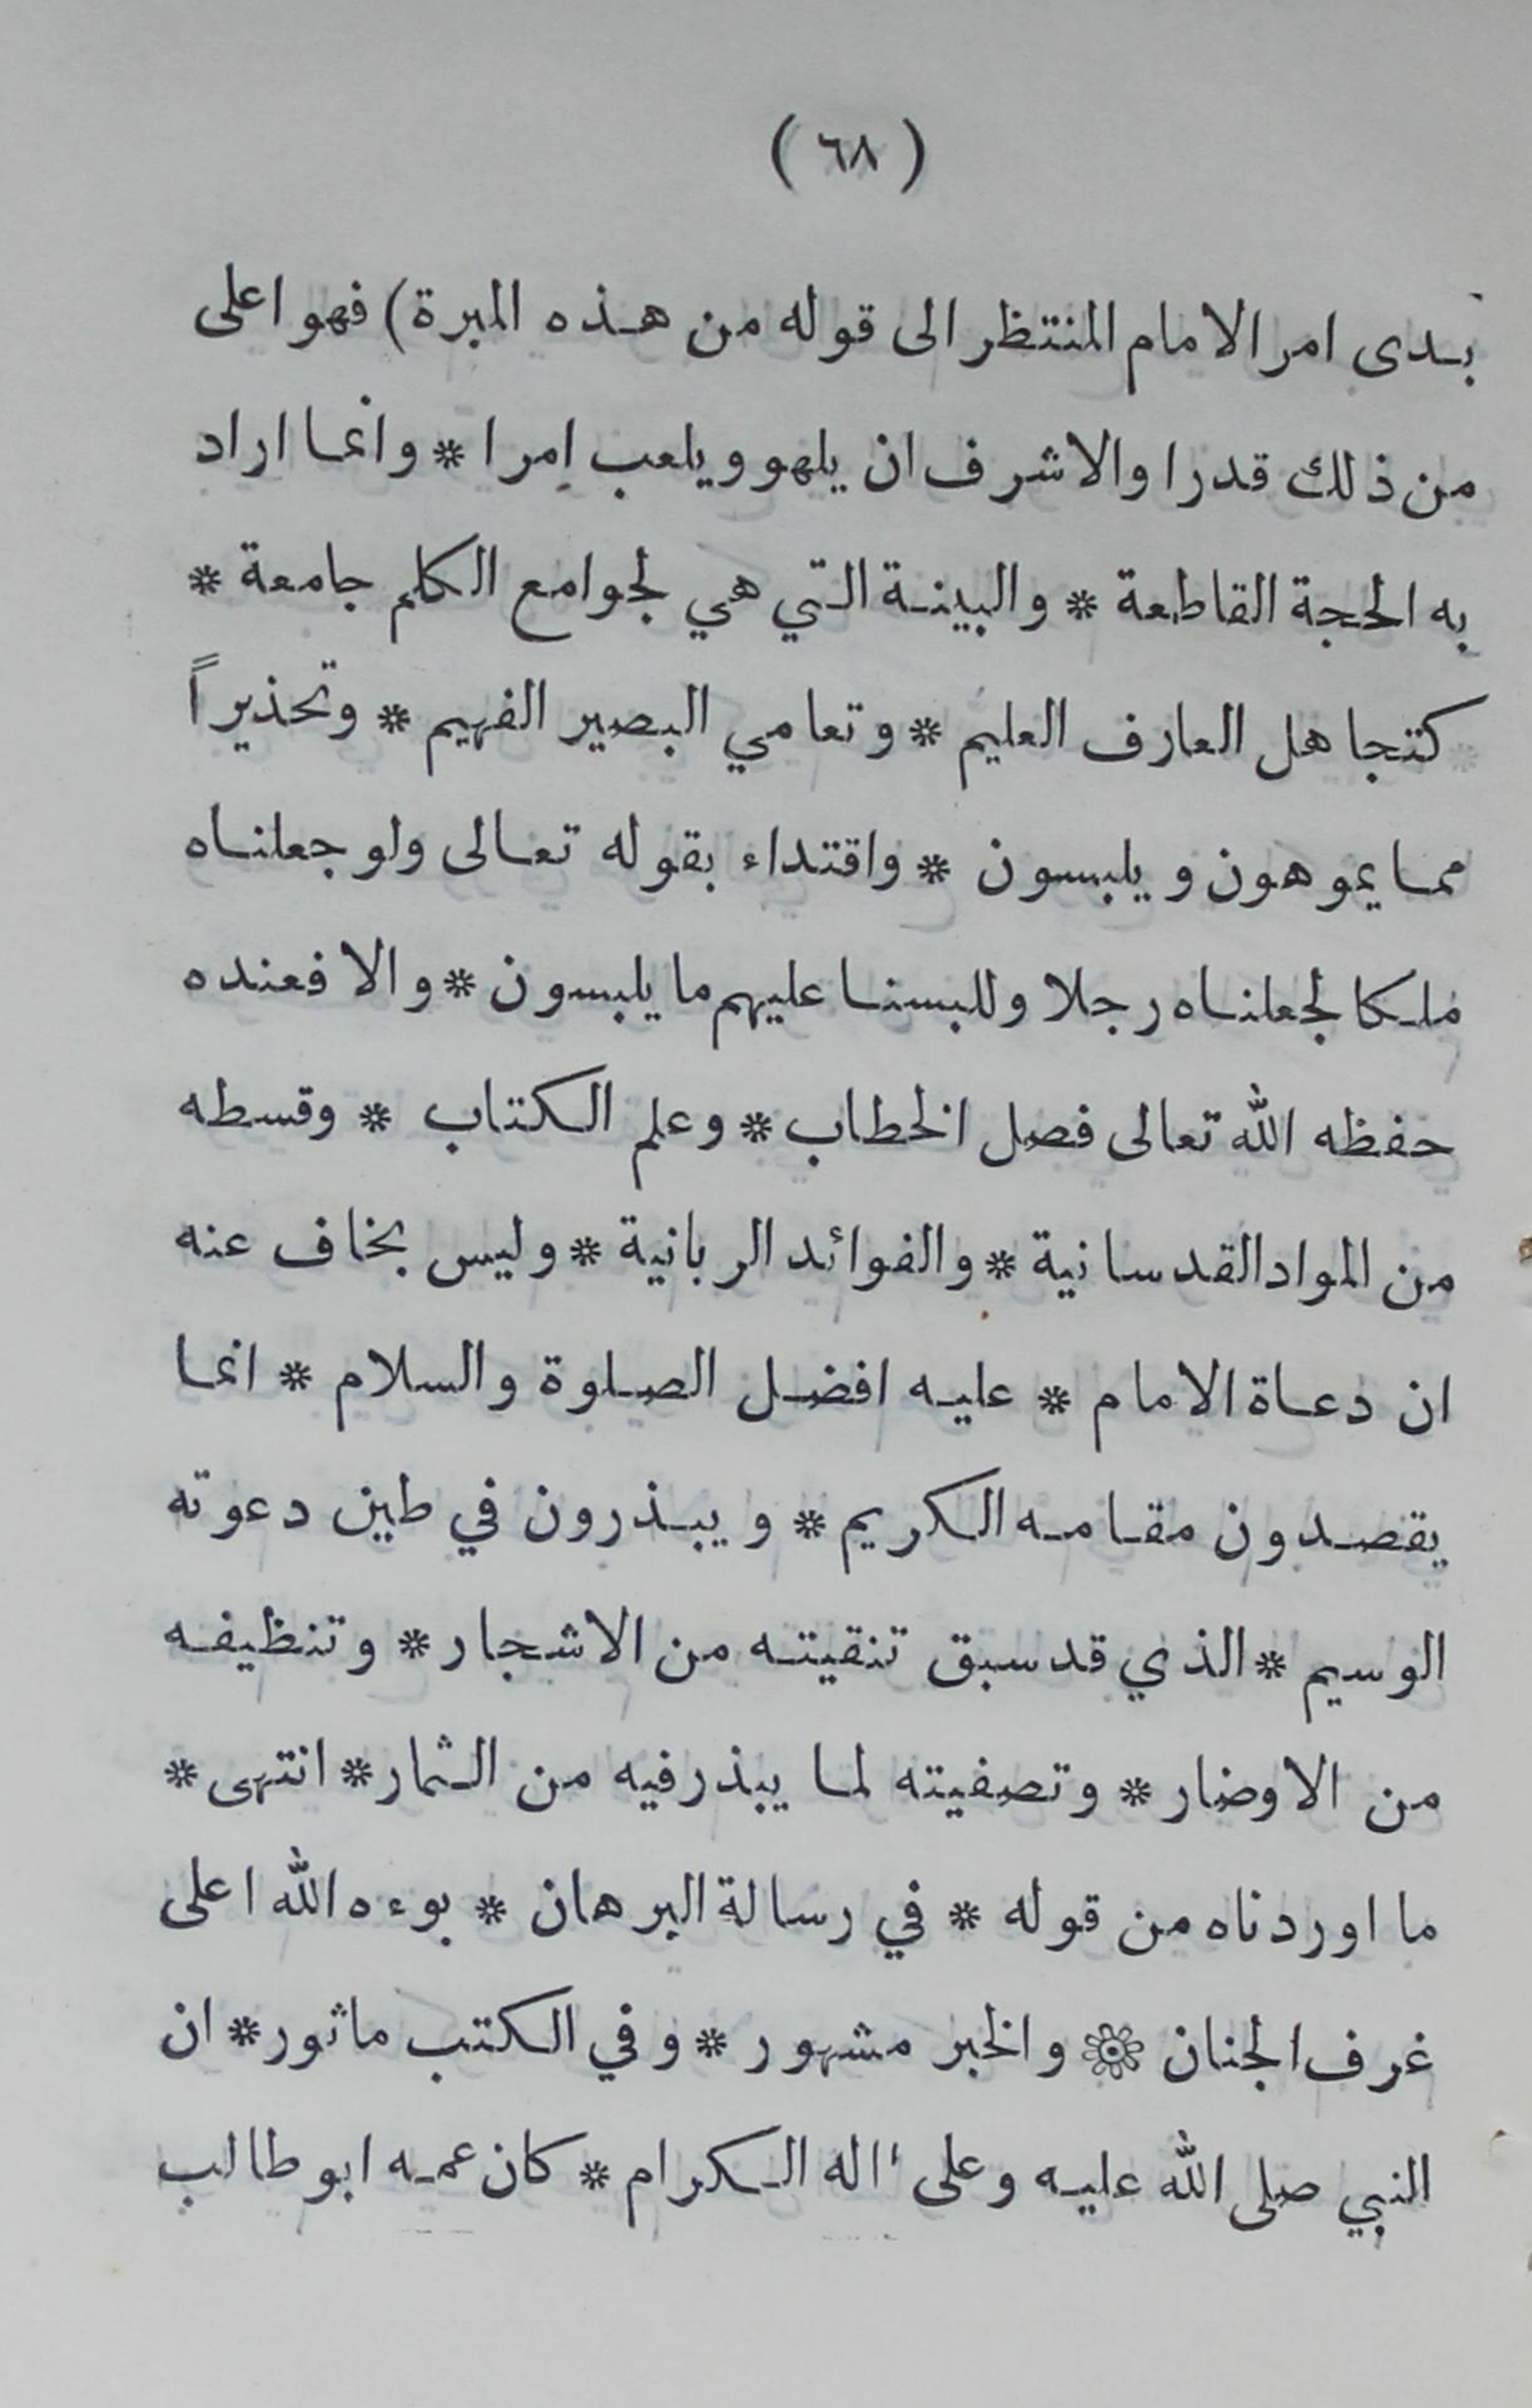 ( ٦٨ )
بدى امر الامام المنتظر الى قوله من هذه المبرة) فهو اعلى
من ذلك قدرا والاشرف ان يلهو ويلعب امرا * وانما اراد
به الحجة القاطعة * والبينة التي هي لجوامع الكلم جامعة *
كتجاهل العارف العليم * وتعامي البصير الفهيم * وتحذيراً
مما يموهون ويلبسون * واقتداء بقوله تعالى ولو جعلناه
ملكا لجعلناه رجلا وللبسنا عليهم ما يلبسون * والا فعنده
حفظه الله تعالى فصل الخطاب * وعلم الكتاب * وقسطه
من المواد القدسانية * والفوائد الربانية * وليس بخاف عنه
ان دعاة الامام * عليه افضل الصلوة والسلام * انما
يقصدون مقامه الكريم * ويبذرون في طين دعوته
الوسيم * الذي قد سبق تنقيته من الاشجار * وتنظيفه
من الاوضار * وتصفيته لما يبذر فيه من الثمار * انتهى *
ما اوردناه من قوله * في رسالة البرهان * بوءه الله اعلى
غرف الجنان ۞ والخبر مشهور * وفي الكتب ماثور * ان
النبي صلى الله عليه وعلى اله الكرام * كان عمه ابو طالب